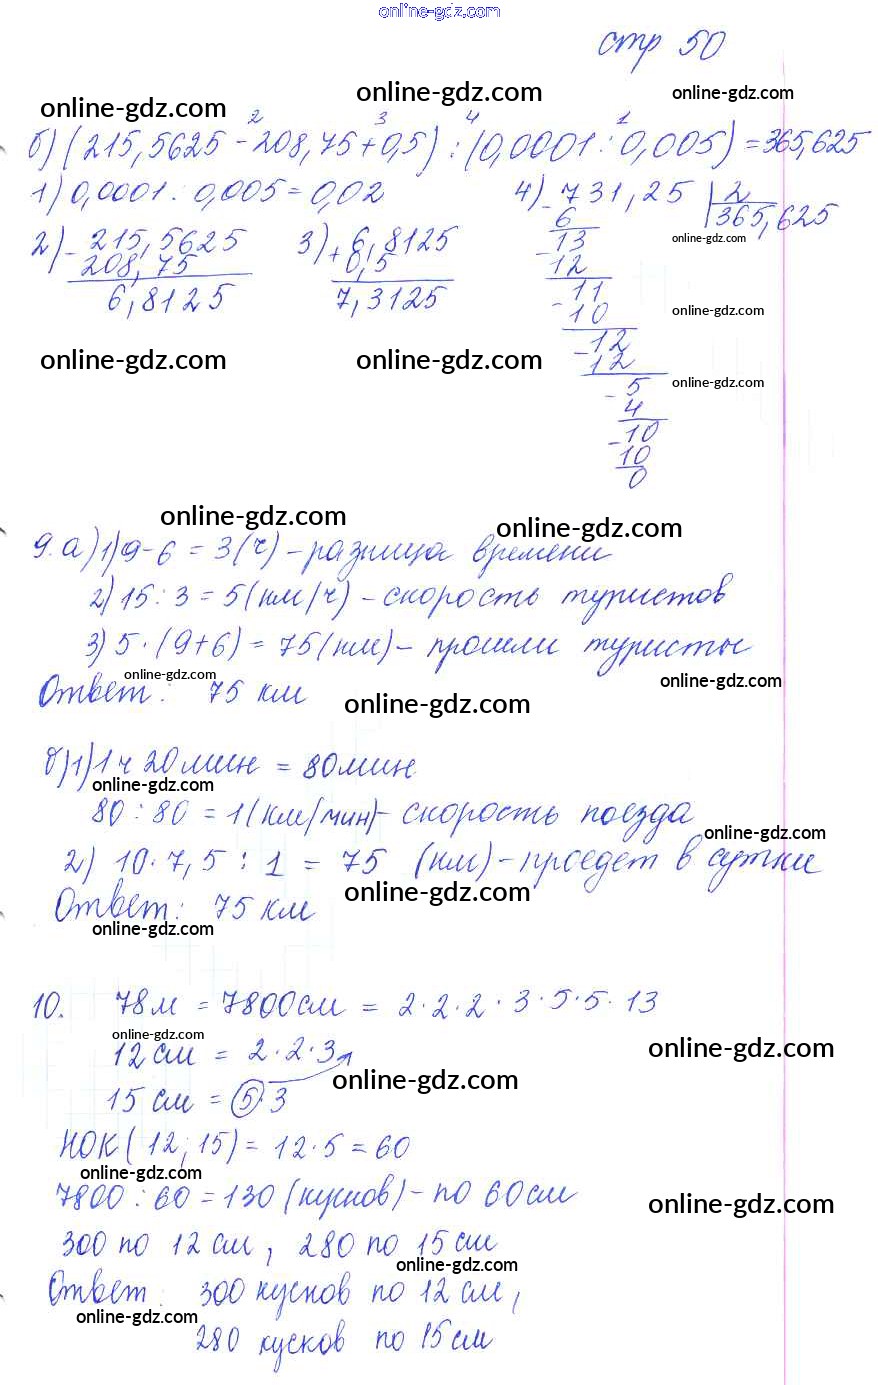 online-gdz.com
стр 50
online-gdz.com
online-gdz.com
online-gdz.com
2 3 4 1
б) (215,5625 - 208,75 + 0,5) : (0,0001 : 0,005) = 365,625
1) 0,0001 : 0,005 = 0,02
4) - 731,25 | 2
6
365,625
online-gdz.com
2) - 215,5625
208,75
6,8125
3) + 6,8125
0,5
7,3125
- 13
12
- 11
10
online-gdz.com
- 12
12
online-gdz.com
online-gdz.com
online-gdz.com
- 5
4
- 10
10
0
online-gdz.com
online-gdz.com
9. а) 1) 9 - 6 = 3 (ч) - разница времени
2) 15 : 3 = 5 (км/ч) - скорость туристов
3) 5 · (9 + 6) = 75 (км) - прошли туристы
online-gdz.com
online-gdz.com
Ответ: 75 км
online-gdz.com
б) 1) 1 ч 20 мин = 80 мин
online-gdz.com
80 : 80 = 1 (км/мин) - скорость поезда
online-gdz.com
2) 10 · 7,5 : 1 = 75 (км) - проедет в сутки
online-gdz.com
Ответ: 75 км
online-gdz.com
10. 78 м = 7800 см = 2 · 2 · 2 · 3 · 5 · 5 · 13
online-gdz.com
12 см = 2 · 2 · 3
online-gdz.com
online-gdz.com
15 см = 5 · 3
НОК (12; 15) = 12 · 5 = 60
online-gdz.com
7800 : 60 = 130 (кусков) - по 60 см
online-gdz.com
300 по 12 см, 280 по 15 см
online-gdz.com
Ответ: 300 кусков по 12 см,
online-gdz.com
280 кусков по 15 см